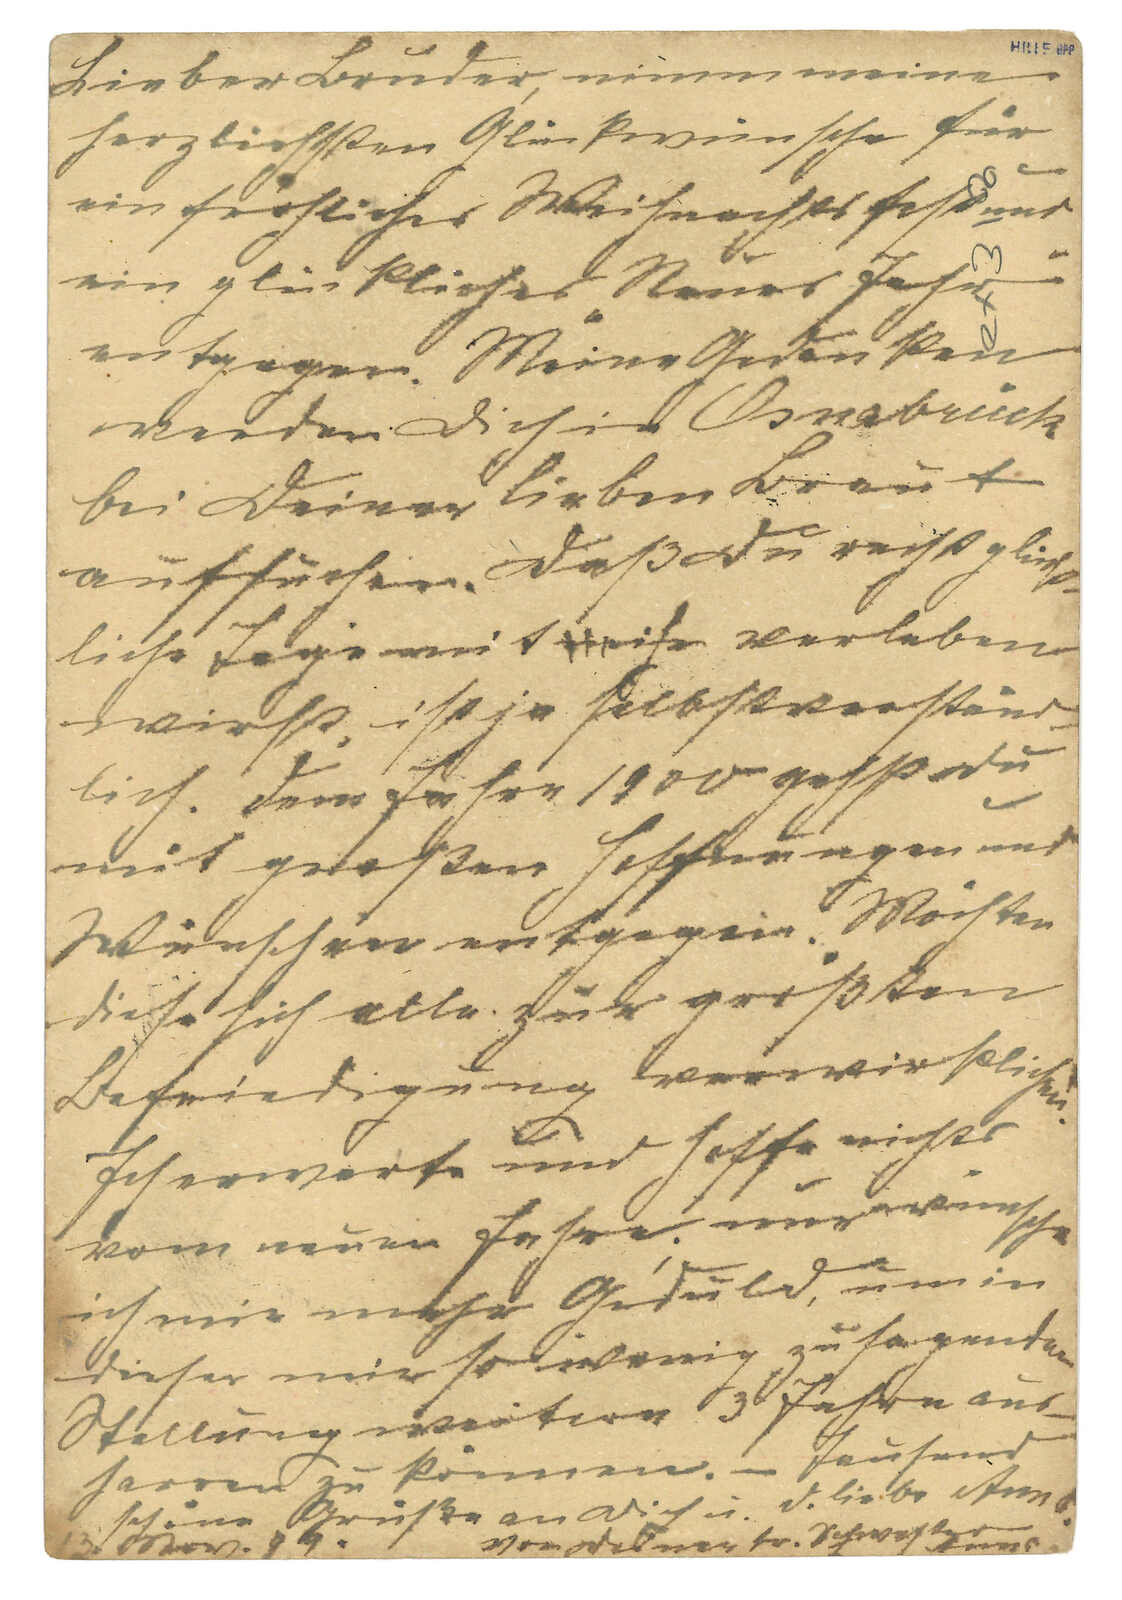 Lieber Bruder, nimm meine
herzlichsten Glückwünsche für
ein fröhliches Weihnachtsfest und
ein glückliches Neues Jahr
entgegen. Meine Gedanken
werden Dich in Osnabrück
bei Deiner lieben Braut
aufsuchen. Daß Du recht glück-
liche Tage mit verleben
wirst, ist ja selbstverständ-
lich. Dem Jahre 1900 gehst Du
mit großen Hoffnungen und
Wünschen entgegen. Möchten
diese sich alle zur größten
Befriedigung verwirklichen.
Ich erwarte und hoffe nichts
vom neuen Jahre, nur wünsche
ich mir mehr Geduld, um in
dieser mir so wenig zusagenden
Stellung weitere 3 Jahre aus-
harren zu können. — Tausend
schöne Grüße an Dich u. d. liebe
13. Nov. 99. von Deiner tr. Schwester